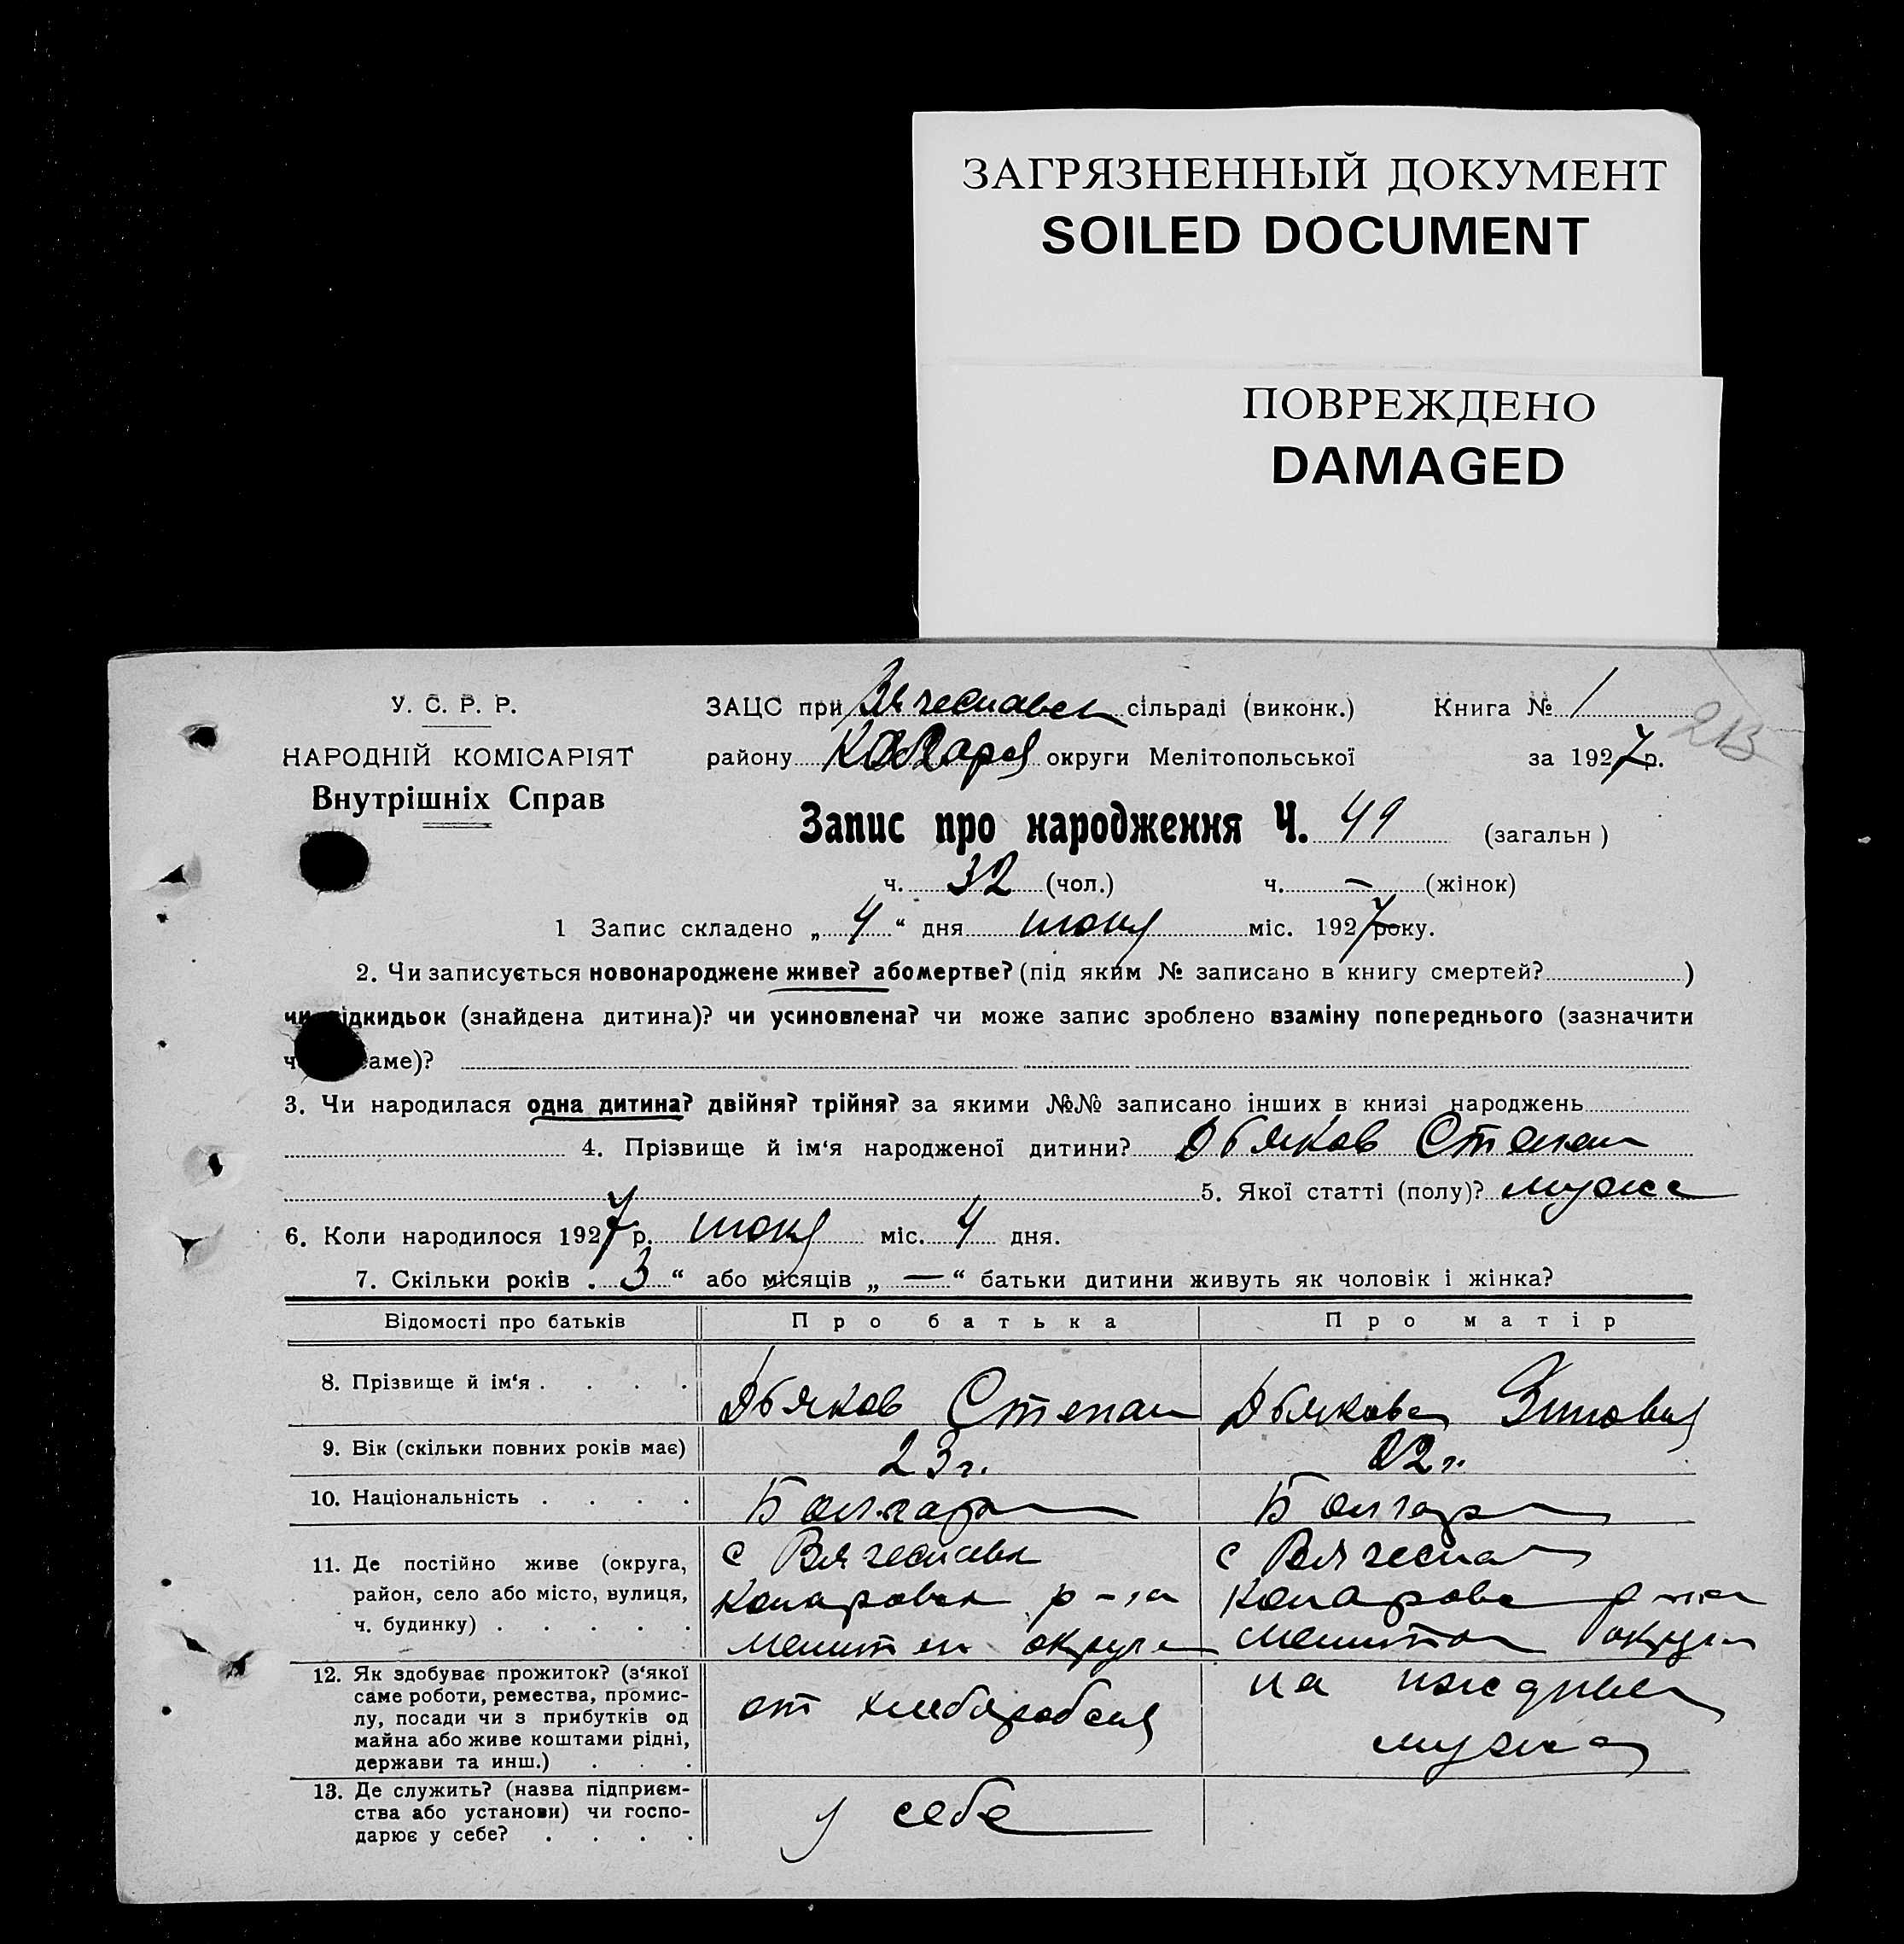 ЗАГРЯЗНЕННЫЙ ДОКУМЕНТ
SOILED DOCUMENT
ПОВРЕЖДЕНО
DAMAGED
У. С. Р. Р.
НАРОДНІЙ КОМІСАРІЯТ
Внутрішніх Справ
ЗАЦС при Вячеславск сільраді (виконк.) Книга № 1
213
району округи Мелітопольської за 1927 р.
Запис про народження Ч. 49 (загальн)
ч. 32 (чол.) ч. — (жінок)
1 Запис складено „ 4 “ дня июня міс. 1927 року.
2. Чи записується новонароджене живе? або мертве? (під яким № записано в книгу смертей? )
чи підкидьок (знайдена дитина)? чи усиновлена? чи може запис зроблено взаміну попереднього (зазначити
саме)?
3. Чи народилася одна дитина? двійня? трійня? за якими №№ записано інших в книзі народжень
4. Прізвище й ім‘я народженої дитини? Дьяков Степан
5. Якої статті (полу)? мужс
6. Коли народилося 1927 р. июня міс. 4 дня.
7. Скільки років „ 3 “ або місяців „ — “ батьки дитини живуть як чоловік і жінка?
Відомості про батьків Про батька Про матір
8. Прізвище й ім‘я . . . . Дьяков Степан Дьякова Зиновия
9. Вік (скільки повних років має) 23 г. 22 г.
10. Національність . . . . Болгар Болгар
11. Де постійно живе (округа, с Вячеславк с Вячеслав
район, село або місто, вулиця, р-на р-на
ч. будинку) . . . . . Мелитоп округа Мелитоп округа
12. Як здобуває прожиток? (з‘якої
саме роботи, ремества, промис-
лу, посади чи з прибутків од
майна або живе коштами рідні,
держави та инш.) . . .
от хлеборобсия на иждивен
мужа
13. Де служить? (назва підприєм-
ства або установи) чи госпо-
дарює у себе? . . . .
у себе